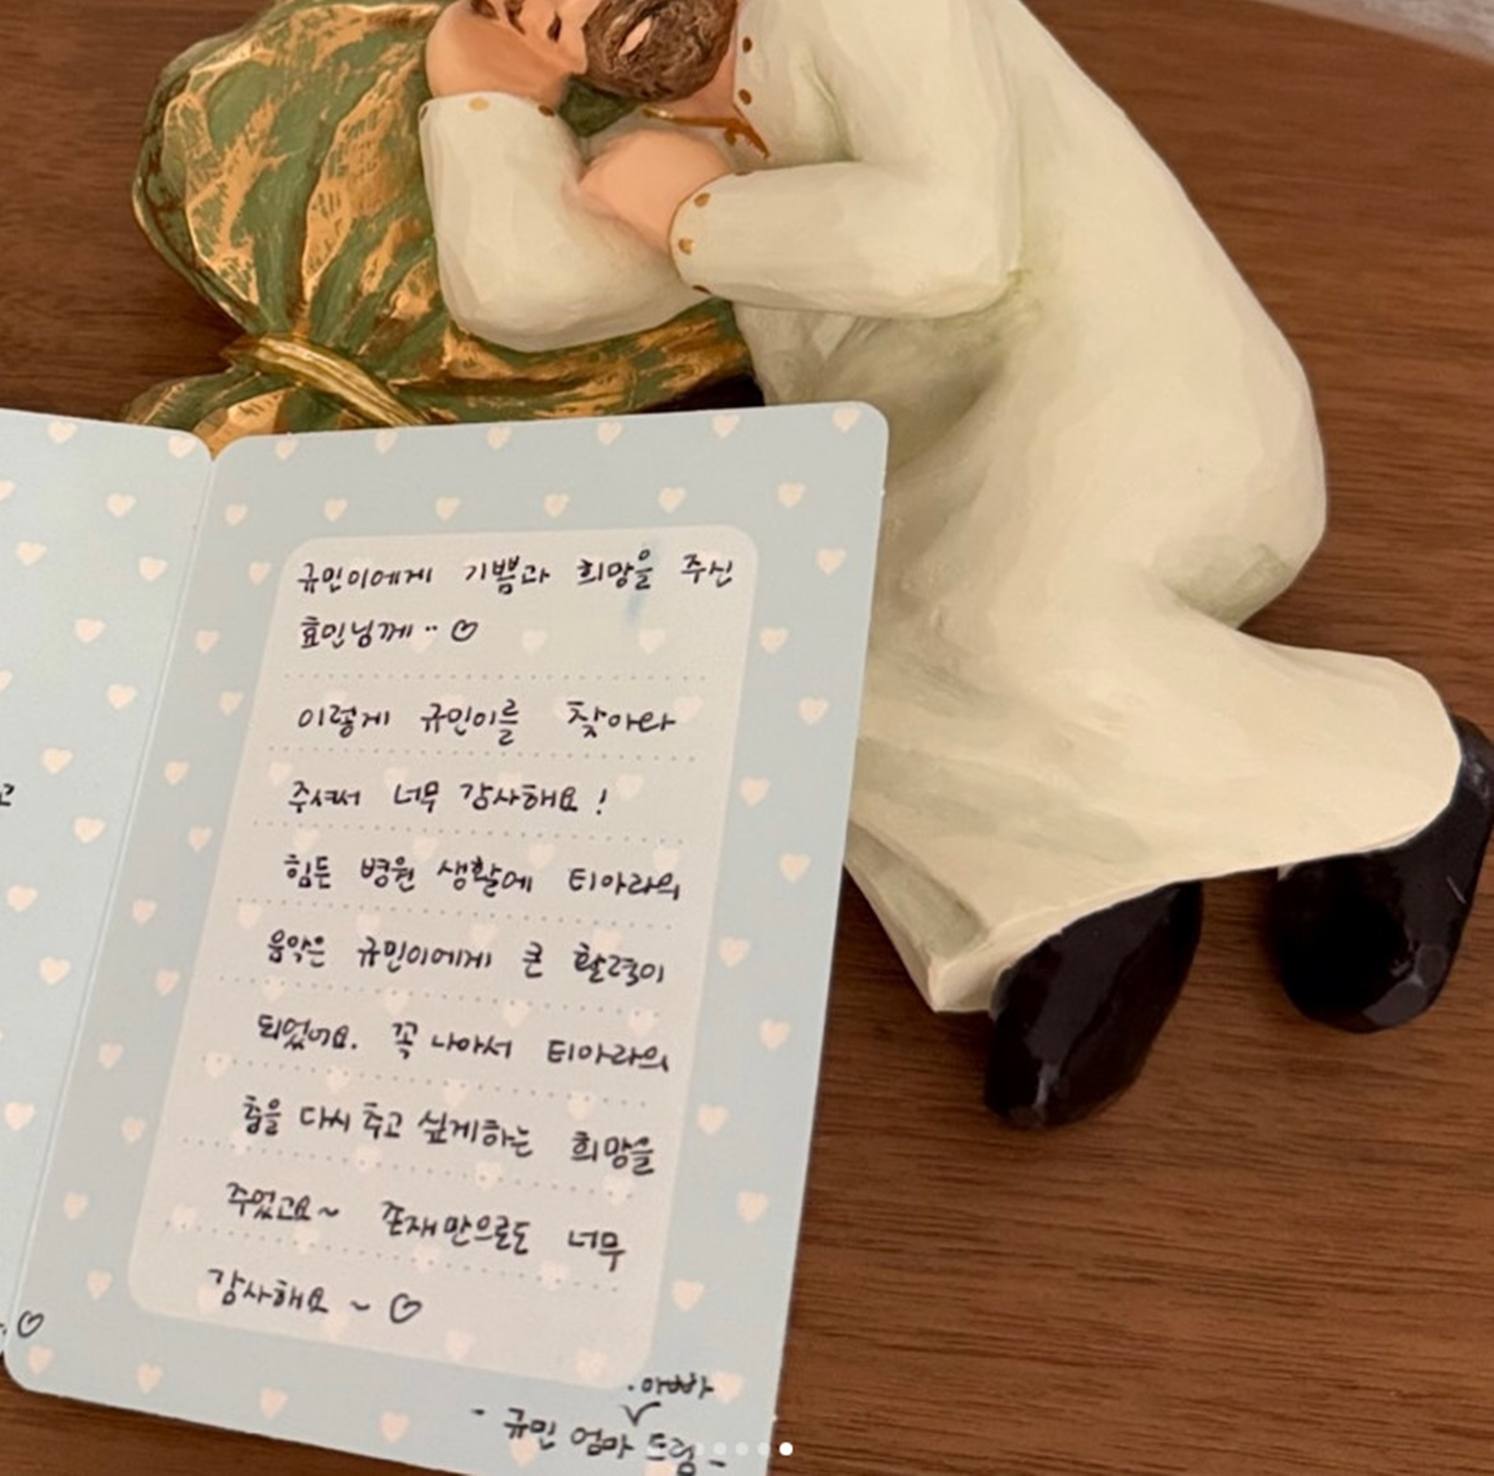 고
♡
규민이에게 기쁨과 희망을 주신
효민님께.. ♡
이렇게 규민이를 찾아와
주셔서 너무 감사해요!
힘든 병원 생활에 티아라의
음악은 규민이에게 큰 활력이
되었어요. 꼭 나아서 티아라의
춤을 다시 추고 싶게하는 희망을
주었고요~ 존재만으로도 너무
감사해요 ~ ♡
·아빠
- 규민 엄마 드림 -